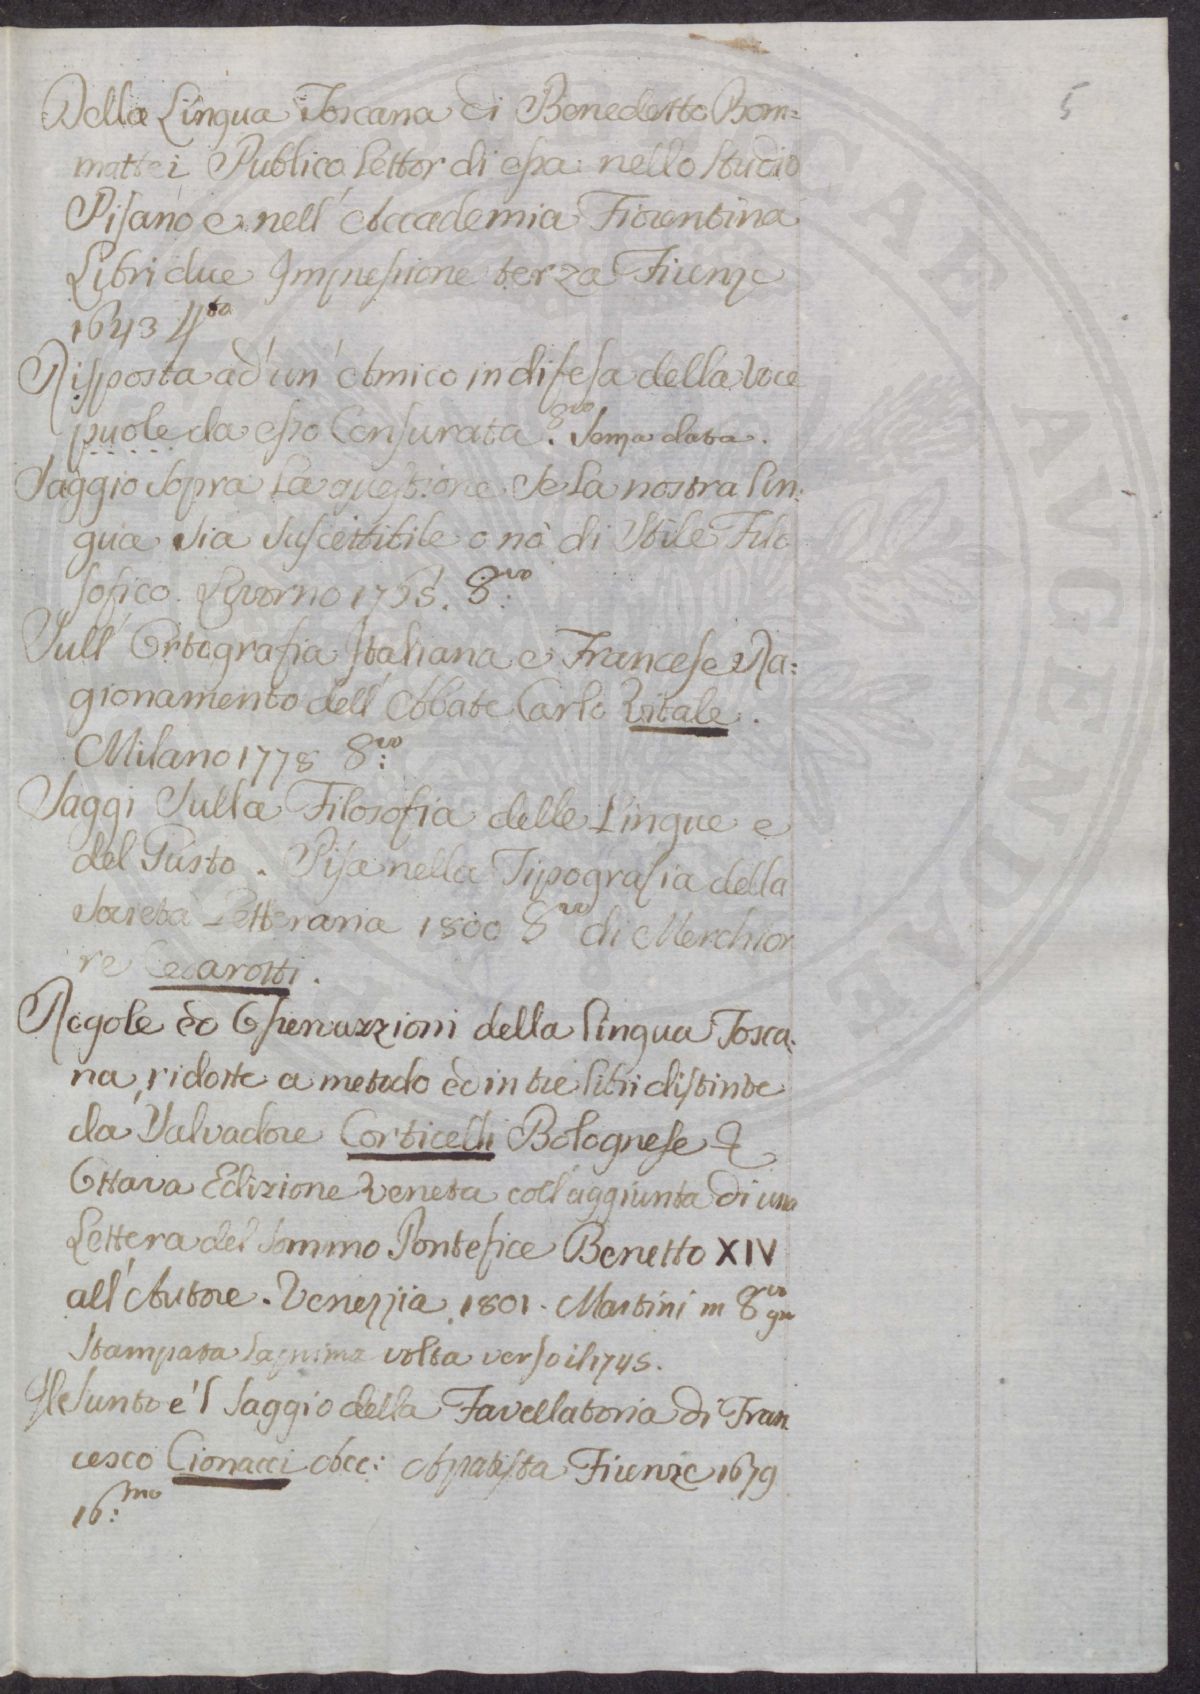 5
Della Lingua Toscana di Benedetto Bom=
mattei Publico Lettor di essa nello Studio
Pisano e nell' Accademia Fiorentina
Libri due Impressione terza Firenze
1643 4.to
Risposta ad un' Amico in difesa della Voce
puole da esso Censurata. 8.vo Senza data.
Saggio sopra la questione se la nostra lin:
gua sia suscettibile o nò di Stile Filo
sofico. Livorno 8.vo
Sull' Ortografia Italiana e Francese Ra:
gionamento dell' Abbate Carlo Vitale.
Milano 1778 8.vo
Saggi Sulla Filosofia delle Lingue e
del Gusto. Pisa nella Tipografia della
Società Letteraria 1800 8.vo di Merchior
re Cesarotti.
Regole ed Osservazzioni della lingua Tosca:
na, ridotte a metodo ed in tre libri distinte
da Salvadore Corticelli Bolognese &
Ottava Edizione Veneta coll' aggiunta di una
Lettera del Sommo Pontefice Benetto XIV
all' Autore. Venezzia 1801. Martini in 8.vo
Stampata la prima volta verso il 1745.
Il Sunto e 'l Saggio della Favellatoria di Fran
cesco Cionacci Acc: Apatista Firenze 1679
16.mo